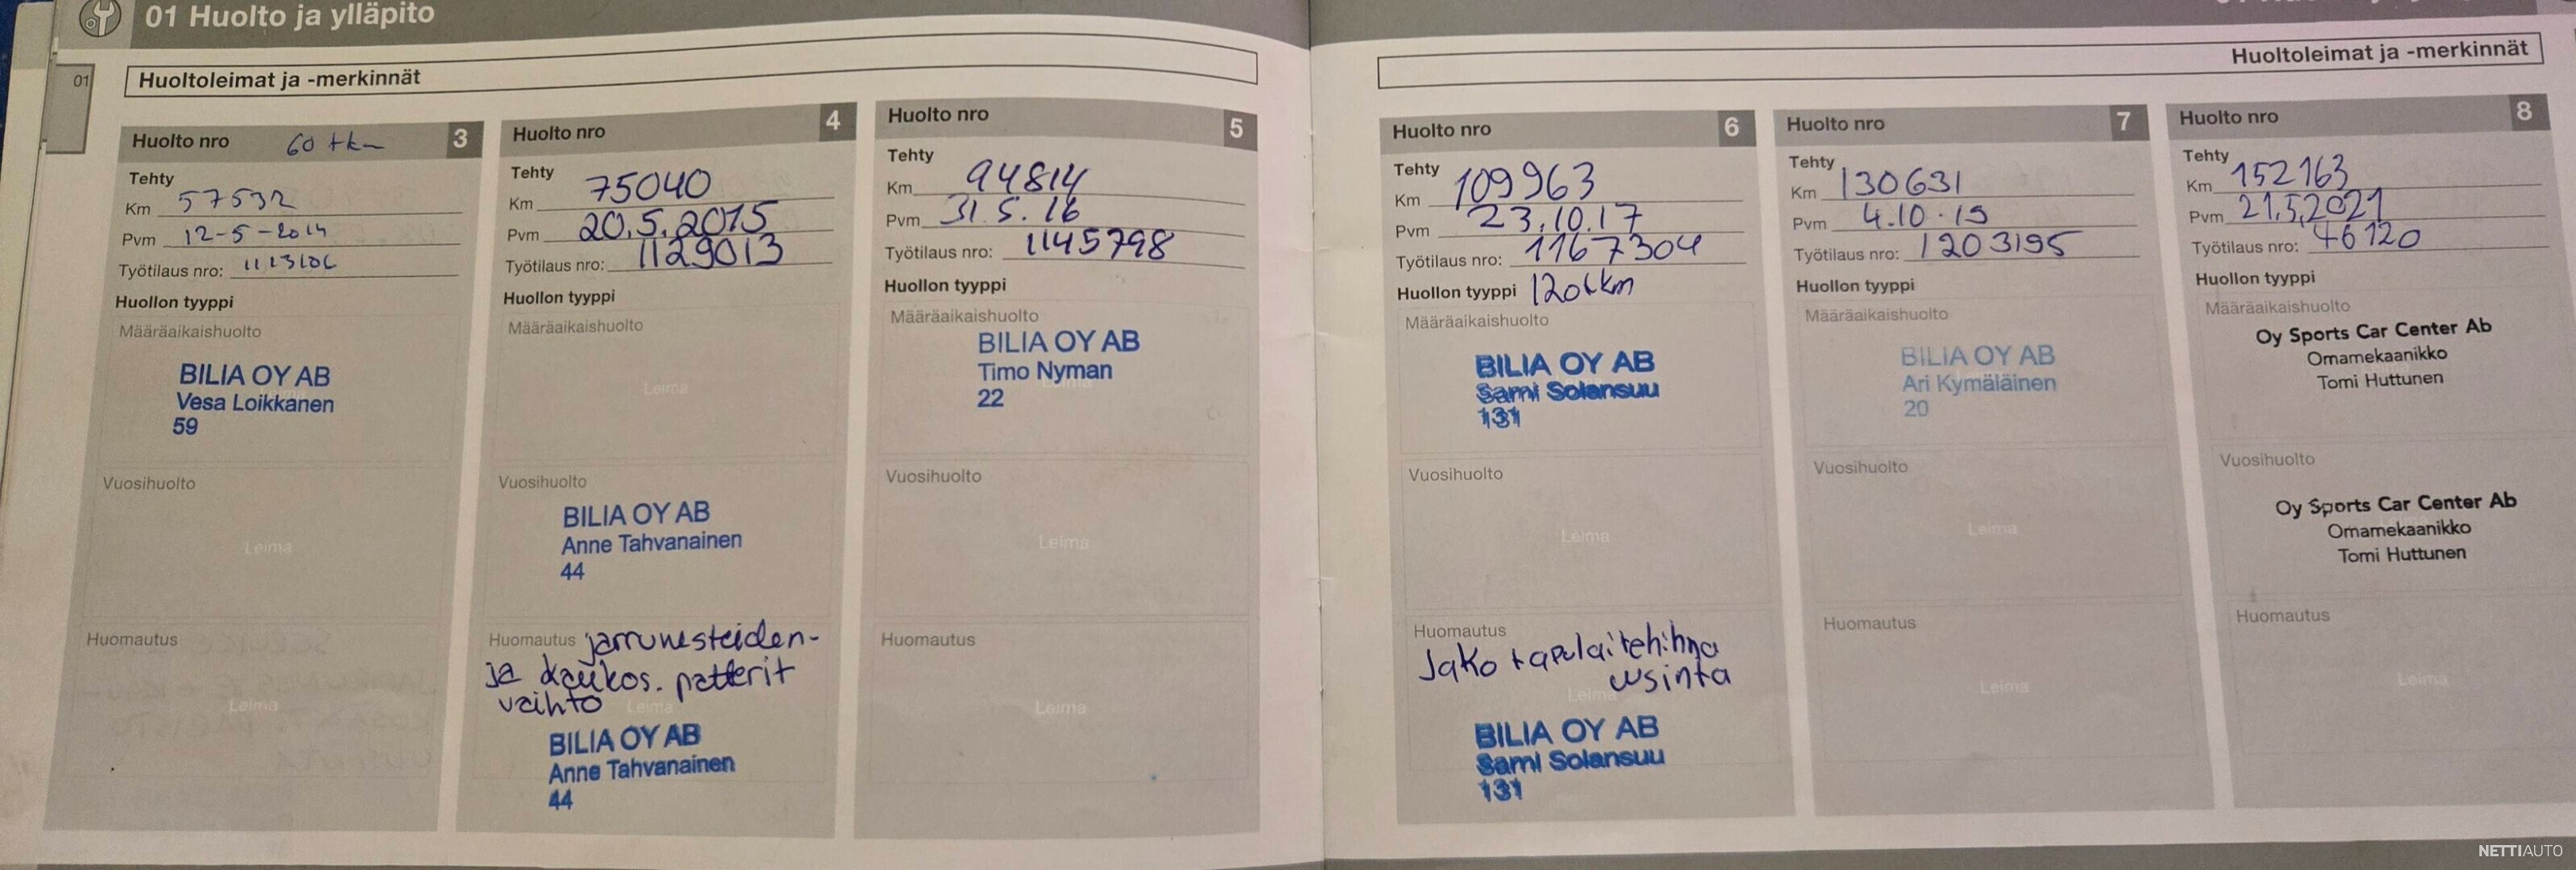 01 Huolto ja ylläpito
01
Huoltoleimat ja -merkinnät
Huolto nro 60 tkm 3
Tehty
Km 57532
Pvm 12-5-2014
Työtilaus nro:
Huollon tyyppi
Määräaikaishuolto
BILIA OY AB
Vesa Loikkanen
59
Vuosihuolto
Leima
Huomautus
Leima
Huolto nro 4
Tehty
Km 75040
Pvm 20.5.2015
Työtilaus nro: 1129013
Huollon tyyppi
Määräaikaishuolto
Leima
Vuosihuolto
BILIA OY AB
Anne Tahvanainen
44
Huomautus jarrunesteiden-
ja kaukos. patterit
vaihto
Leima
BILIA OY AB
Anne Tahvanainen
44
Huolto nro 5
Tehty
Km 94814
Pvm 31.5.16
Työtilaus nro: 1145798
Huollon tyyppi
Määräaikaishuolto
BILIA OY AB
Timo Nyman
22
Vuosihuolto
Leima
Huomautus
Leima
Huoltoleimat ja -merkinnät
Huolto nro 6
Tehty
Km 109963
Pvm 23.10.17
Työtilaus nro: 1167304
Huollon tyyppi 120tkm
Määräaikaishuolto
BILIA OY AB
Sami Solansuu
131
Vuosihuolto
Leima
Huomautus
Jako + apulaitehihna
uusinta
Leima
BILIA OY AB
Sami Solansuu
131
Huolto nro 7
Tehty
Km 130631
Pvm 4.10.19
Työtilaus nro: 1203195
Huollon tyyppi
Määräaikaishuolto
BILIA OY AB
Ari Kymäläinen
20
Vuosihuolto
Leima
Huomautus
Leima
Huolto nro 8
Tehty
Km 152163
Pvm 21.5.2021
Työtilaus nro: 46120
Huollon tyyppi
Määräaikaishuolto
Oy Sports Car Center Ab
Omamekaanikko
Tomi Huttunen
Vuosihuolto
Oy Sports Car Center Ab
Omamekaanikko
Tomi Huttunen
Huomautus
Leima
NETTIAUTO